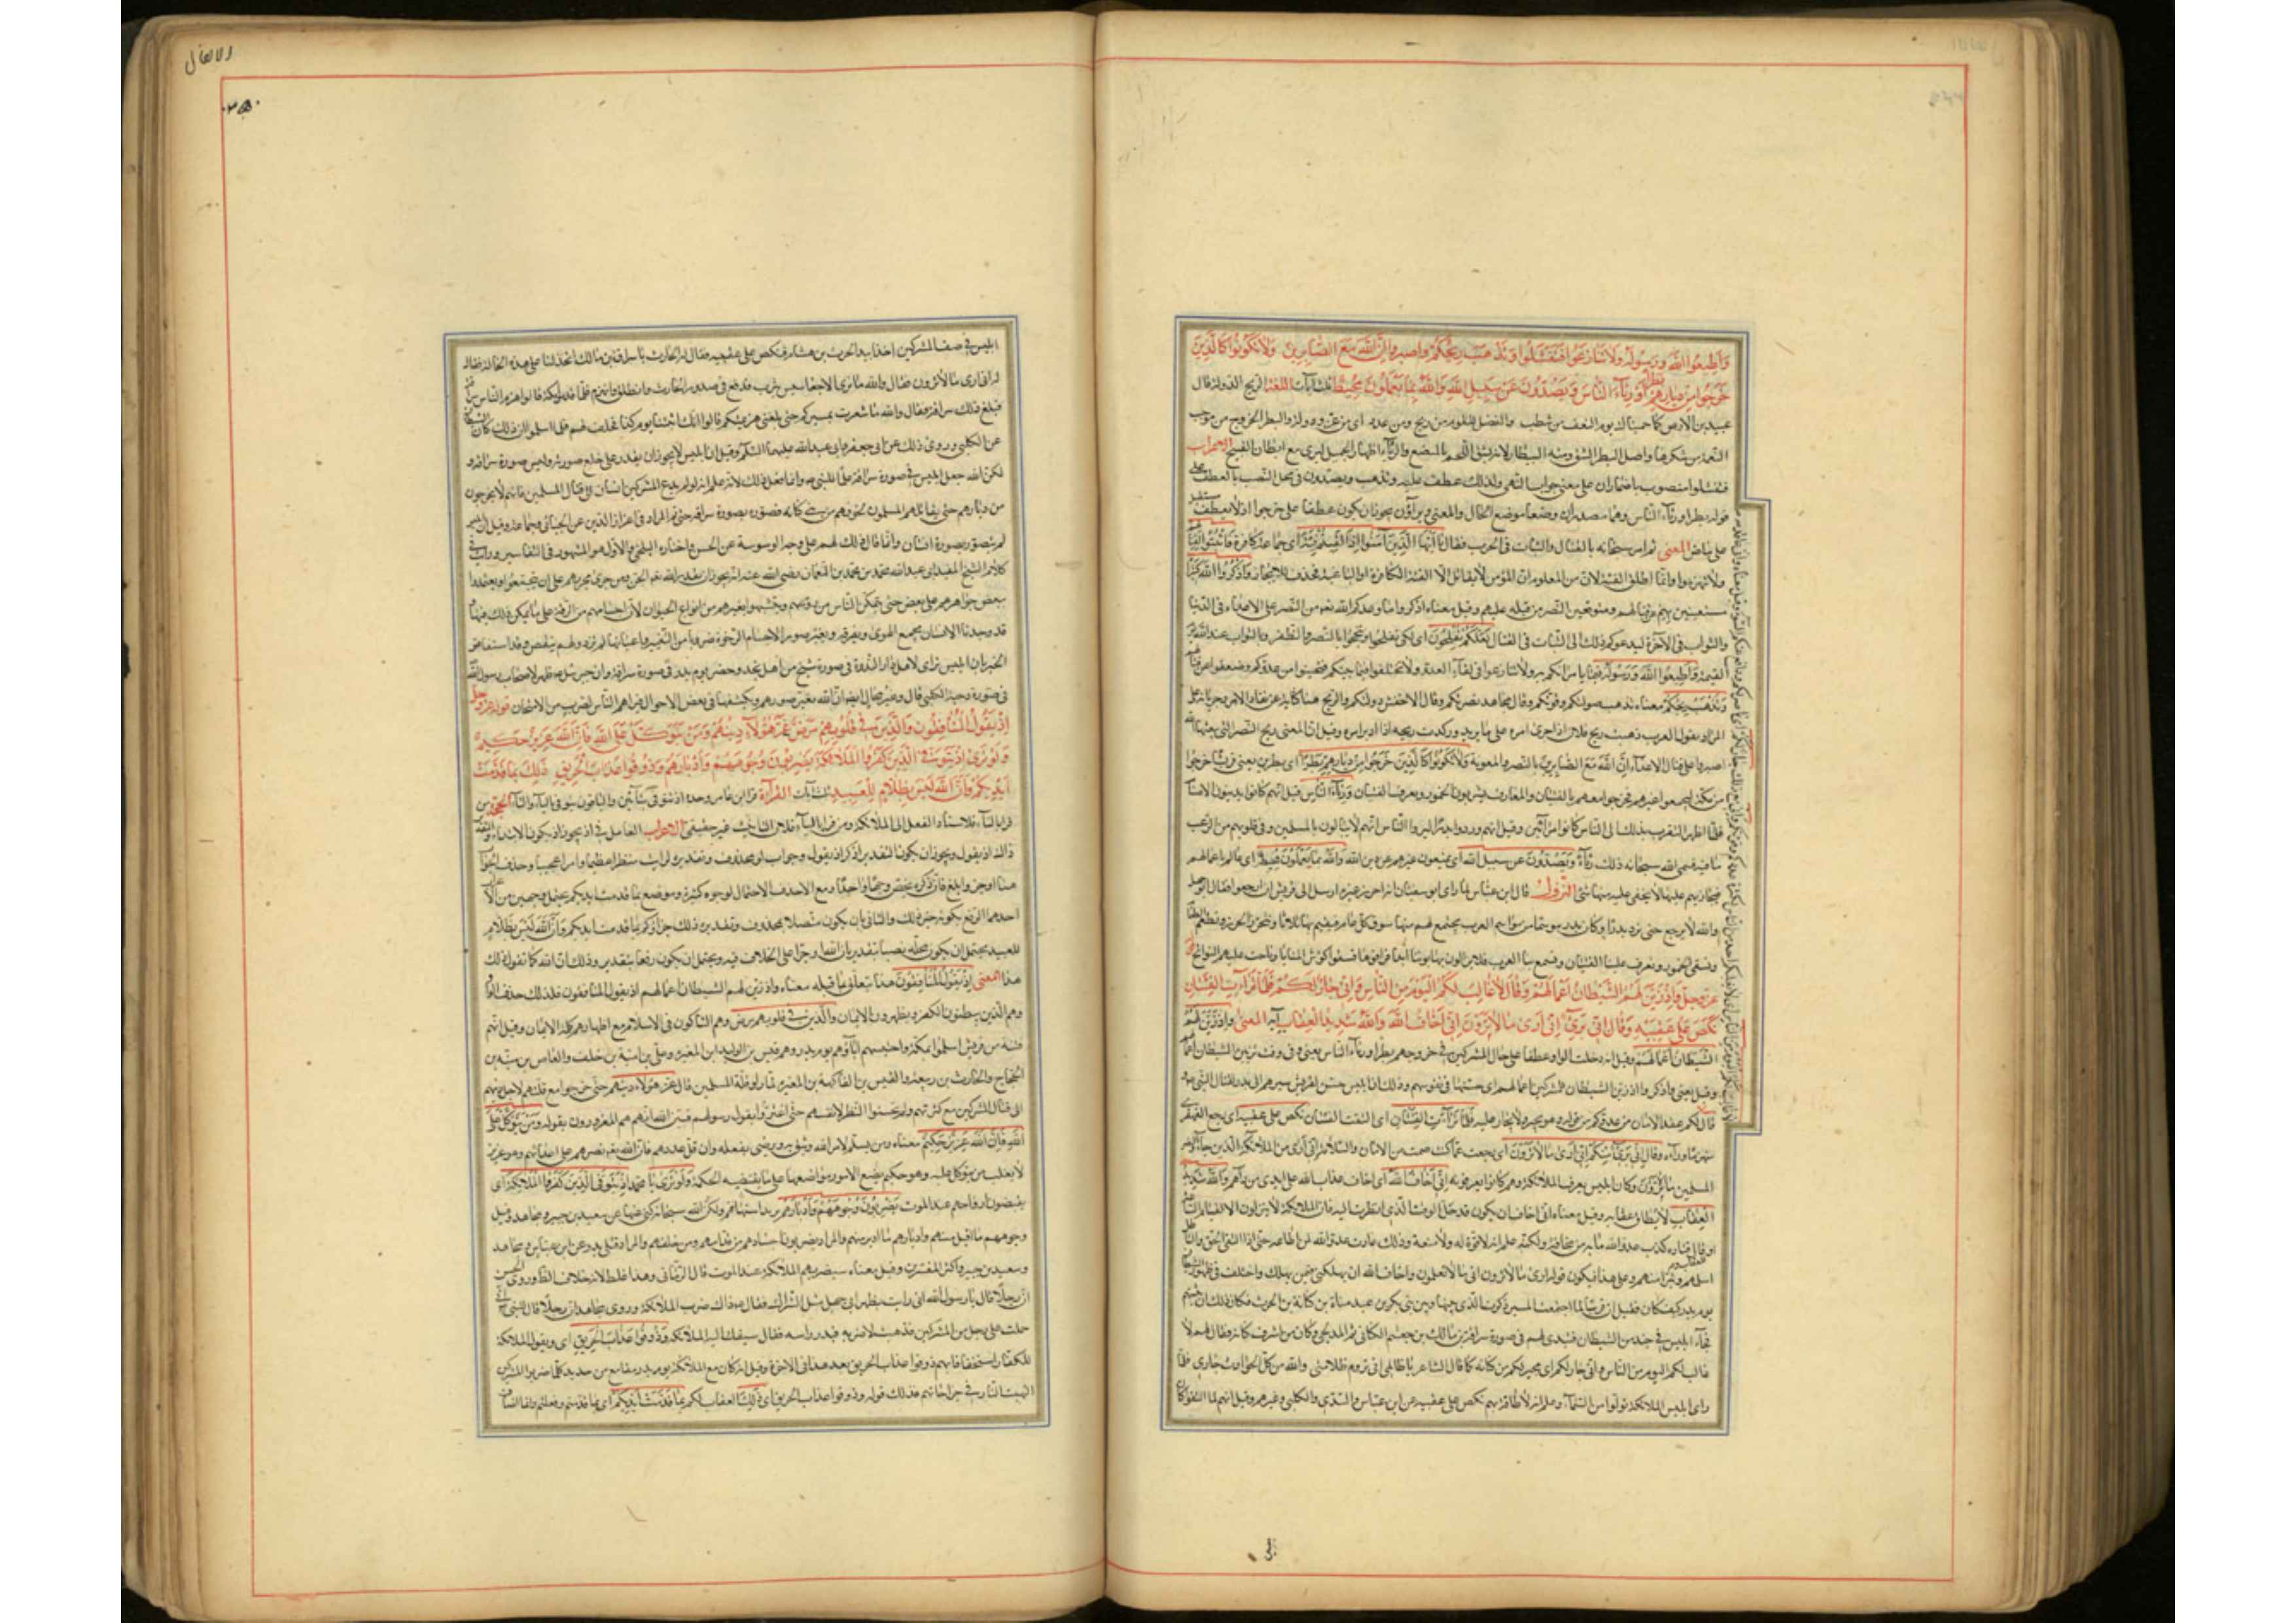 وَأَطِيعُوا اللَّهَ وَرَسُولَهُ وَلَا تَنَازَعُوا فَتَفْشَلُوا وَتَذْهَبَ رِيحُكُمْ وَاصْبِرُوا إِنَّ اللَّهَ مَعَ الصَّابِرِينَ وَلَا تَكُونُوا كَالَّذِينَ
خَرَجُوا مِنْ دِيَارِهِمْ بَطَرًا وَرِئَاءَ النَّاسِ وَيَصُدُّونَ عَنْ سَبِيلِ اللَّهِ وَاللَّهُ بِمَا يَعْمَلُونَ مُحِيطٌ ثلث آيات اللغة الريح الدولة قال
عبيد بن الابرص كما حميناك يوم النعف من شطب والفضل للقوم من ريح ومن عدد اى من عز ودولة والبطر الخروج من موجب
النعمة من شكرها واصل البطر الشق ومنه البيطار لانه يشق اللحم بالمبضع والرئاء اظهار الجميل ليرى مع ابطان القبيح الاعراب
فتفشلوا منصوب باضمار ان على معنى جواب النهى ولذلك عطف عليه وتذهب ويصدون فى محل النصب بالعطف على
قوله بطرا ورئاء الناس وهما مصدران وضعا موضع الحال والمعنى ويجوز ان يكون عطفا على خرجوا اذ لا يعطف مستقبل
على ماض المعنى ثم امر سبحانه بالقتال والثبات فى الحرب فقال يا ايها الذين آمنوا اذا لقيتم فئة اى جماعة كافرة فاثبتوا لقتالهم
ولا تنهزموا وانما اطلق الفئة لان من المعلوم ان المؤمن لا يقاتل الا الفئة الكافرة او الباغية فحذف للايجاز واذكروا الله كثيرا
مستعينين به على قتالهم ومتوقعين النصر من قبله عليهم وقيل معناه اذكروا ما وعدكم الله تعالى من النصر على الاعداء فى الدنيا
والثواب فى الآخرة ليدعوكم ذلك الى الثبات فى القتال لعلكم تفلحون اى لكى تفلحوا وتنجحوا بالنصر والظفر وبالثواب عند الله يوم
القيمة واطيعوا الله ورسوله فيما يامرانكم به ولا تنازعوا فى لقاء العدو ولا تختلفوا فيما بينكم فتجبنوا من عدوكم وتضعفوا عن قتالهم
وتذهب ريحكم معناه تذهب صولتكم وقوتكم وقال مجاهد نصرتكم وقال الاخفش دولتكم والريح هنا كناية عن نفاذ الامر وجريانه على
المراد يقول العرب هبت ريح فلان اذا جرى امره على ما يريد وركدت ريحه اذا ادبر امره وقيل ان المعنى ريح النصر التى يبعثها الله
اصبروا على قتال الاعداء ان الله مع الصابرين بالنصر والمعونة ولا تكونوا كالذين خرجوا من ديارهم بطرا اى بطرين يعنى قريشا خرجوا
من مكة ليحموا عيرهم فخرجوا معهم بالقينات والمعازف يشربون الخمور ويعزف القينات ورئاء الناس قيل انهم كانوا يدينون الاصنام
فلما اظهروا التقرب بذلك الى الناس كانوا مرائين وقيل انهم وردوا بدرا ليروا الناس انهم لا يبالون بالمسلمين وفى قلوبهم من الرعب
ما فيه فسمى الله سبحانه ذلك رئاء ويصدون عن سبيل الله اى يمنعون غيرهم عن دين الله والله بما يعملون محيط اى عالم باعمالهم
فيجازيهم عليها لا يخفى عليه منها شئ النزول قال ابن عباس لما راى ابو سفيان انه احرز عيره ارسل الى قريش ان ارجعوا فقال ابو جهل
والله لا نرجع حتى نرد بدرا وكان بدر موسما من مواسم العرب يجتمع لهم بها سوق كل عام فنقيم بها ثلاثا وننحر الجزر ونطعم الطعام
ونسقى الخمور وتعزف علينا القينات وتسمع بنا العرب فلا يزالون يهابوننا ابدا فوافوها فسقوا كؤوس المنايا وناحت عليهم النوائح قوله
عز وجل وَإِذْ زَيَّنَ لَهُمُ الشَّيْطَانُ أَعْمَالَهُمْ وَقَالَ لَا غَالِبَ لَكُمُ الْيَوْمَ مِنَ النَّاسِ وَإِنِّي جَارٌ لَكُمْ فَلَمَّا تَرَاءَتِ الْفِئَتَانِ
نَكَصَ عَلَى عَقِبَيْهِ وَقَالَ إِنِّي بَرِيءٌ إِنِّي أَرَى مَا لَا تَرَوْنَ إِنِّي أَخَافُ اللَّهَ وَاللَّهُ شَدِيدُ الْعِقَابِ آية المعنى واذ زين لهم
الشيطان اعمالهم وقيل انه دخلت الواو عطفا على حال المشركين فى خروجهم بطرا ورئاء الناس يعنى وفى وقت تزيين الشيطان اعمالهم
وقيل يعنى واذكروا اذ زين الشيطان للمشركين اعمالهم اى حسنها فى نفوسهم وذلك ان ابليس حسن لقريش مسيرهم الى بدر لقتال النبى
نكص على عقبيه اى رجع القهقرى
منهزما وراءه وقال انى برئ منكم انى ارى ما لا ترون اى رجعت عما كنت ضمنت من الامان والسلامة لانى ارى من الملائكة الذين جاؤا لنصر
المسلمين ما لا ترون وكان ابليس يعرف الملائكة وهم كانوا يعرفونه انى اخاف الله اى اخاف عذاب الله على ايدى من اراهم والله شديد
العقاب لا يطاق عقابه وقيل معناه انى اخاف ان يكون قد حل الوقت الذى انظرت اليه فان الملائكة لا ينزلون الا لقيام الساعة
او قال قتادة كذب عدو الله ما به من مخافة ولكنه علم انه لا قوة له ولا منعة وذلك عادة عدو الله لمن اطاعه حتى اذا التقى الحق والباطل
اسلمهم وتبرأ منهم وعلى هذا فيكون قوله ارى ما لا ترون انى اعلم ما لا تعلمون واخاف الله ان يهلكنى فيمن يهلك واختلف فى ظهور الشيطان
يوم بدر كيف كان فقيل ان قريشا لما اجتمعت المسير ذكرت الذى بينها وبين بنى بكر بن عبد مناة بن كنانة بن الحرث فكان ذلك ان يثنيهم
فجاء ابليس فى جند من الشيطان فتبدى لهم فى صورة سراقة بن مالك بن جعشم الكنانى ثم المدلجى وكان من اشرف كنانة فقال لهم لا
غالب لكم اليوم من الناس وانى جار لكم اى مجير لكم من كنانة كما قال الشاعر يا ظالمى انى تروم ظلامتى والله من كل الحوادث جارى فلما
راى ابليس الملائكة نزلوا من السماء وعلم انه لا طاقة له بهم نكص على عقبيه عن ابن عباس والسدى والكلبى وغيرهم وقيل انهم لما التقوا كان
والانفال
ابليس فى صف المشركين اخذا بيد الحرث بن هشام فنكص على عقبيه فقال له الحارث يا سراق بن مالك اتخذلنا على هذه الحالة فقال
له انى ارى ما لا ترون فقال والله ما نرى الا جعاسيس يثرب فدفع فى صدر الحارث وانطلق وانهزم فلما قدموا مكة قالوا هزم الناس سراقة
فبلغ ذلك سراقة فقال والله ما شعرت بمسيركم حتى بلغنى هزيمتكم قالوا انك اتيتنا يوم كذا فحلف لهم فلما اسلموا ان ذلك كان الشيطان
عن الكلبى وروى ذلك عن ابى جعفر وابى عبد الله عليهما السلام وقيل ان ابليس لا يجوز ان يقدر على خلع صورته ولبس صورة سراقة و
لكن الله جعل ابليس فى صورة سراقة علما للنبى وانما فعل ذلك لانه علم انه لو لم يدع المشركين انسان الى قتال المسلمين فانهم لا يخرجون
من ديارهم حتى يقاتلهم المسلمون لخوفهم من بنى كنانة فصوره بصورة سراقة حتى تم المراد فى اعزاز الدين عن الجبائى وجماعة وقيل ان ابليس
لم يتصور بصورة انسان وانما قال ذلك لهم على وجه الوسوسة عن الحسن واختاره البلخى والاول هو المشهور فى التفاسير ورايت فى
كلام الشيخ المفيد ابى عبد الله محمد بن محمد بن النعمان رضى الله عنه انه يجوز ان يقدر الله تعالى الجن ومن جرى مجراهم على ان يتجمعوا ويعتمدوا
ببعض جواهرهم على بعض حتى يتمكن الناس من رؤيتهم ويتشبهوا بغيرهم من انواع الحيوان لان اجسامهم من الرقة على ما يمكن ذلك فيها و
قد وجدنا الانسان يجمع الهوى ويفرقه ويغير صور الاجسام الرخوة ضروبا من التغيير واعيانها لم تزد ولم ينقص وقد استفاض
الخبر بان ابليس تراى لاهل دار الندوة فى صورة شيخ من اهل نجد وحضر يوم بدر فى صورة سراقة وان جبرئيل ظهر لاصحاب رسول الله
فى صورة دحية الكلبى قال وغير محال ايضا ان الله يغير صورهم ويكشفها فى بعض الاحوال فيراهم الناس لضرب من الامتحان قوله عز وجل
إِذْ يَقُولُ الْمُنَافِقُونَ وَالَّذِينَ فِي قُلُوبِهِمْ مَرَضٌ غَرَّ هَؤُلَاءِ دِينُهُمْ وَمَنْ يَتَوَكَّلْ عَلَى اللَّهِ فَإِنَّ اللَّهَ عَزِيزٌ حَكِيمٌ
وَلَوْ تَرَى إِذْ يَتَوَفَّى الَّذِينَ كَفَرُوا الْمَلَائِكَةُ يَضْرِبُونَ وُجُوهَهُمْ وَأَدْبَارَهُمْ وَذُوقُوا عَذَابَ الْحَرِيقِ ذَلِكَ بِمَا قَدَّمَتْ
أَيْدِيكُمْ وَأَنَّ اللَّهَ لَيْسَ بِظَلَّامٍ لِلْعَبِيدِ ثلث آيات القرآءة قرأ ابن عامر وحده اذ تتوفى بتائين والباقون يتوفى بالياء والتاء الحجة من
قرا بالتاء فلاسناد الفعل الى الملائكة ومن قرا بالياء فلان التانيث غير حقيقى الاعراب العامل فى اذ يجوز ان يكون الابتداء والتقدير
ذلك اذ يقول ويجوز ان يكون التقدير اذكر اذ يقول وجواب لو محذوف وتقديره لرايت منظرا عظيما وامرا عجيبا وحذف الجواب
هنا اوجز وابلغ فان ذكره يخص وجها واحدا ومع الحذف الاحتمال لوجوه كثيرة وموضع بما قدمت ايديكم يحتمل وجهين من الاعراب
احدهما الرفع بكونه خبر ذلك والثانى بان يكون متصلا بمحذوف وتقديره ذلك جزاؤكم بما قدمت ايديكم وان الله ليس بظلام
للعبيد يحتمل ان يكون محله نصبا بتقدير بان الله او جرا على الخلاف فيه ويحتمل ان يكون رفعا بتقدير وذلك ان الله كما تقول ذلك
هذا المعنى اذ يقول المنافقون هذا يتعلق بما قبله معناه واذ زين لهم الشيطان اعمالهم اذ يقول المنافقون فلذلك حذف الواو
وهم الذين يبطنون الكفر ويظهرون الايمان والذين فى قلوبهم مرض وهم الشاكون فى الاسلام مع اظهارهم كلمة الايمان وقيل انهم
فتية من قريش اسلموا بمكة واحتبسهم اباؤهم يوم بدر وهم قيس بن الوليد بن المغيرة وعلى بن امية بن خلف والعاص بن منبه بن
الحجاج والحارث بن ربيعة وابو القيس بن الفاكهة بن المغيرة لما راوا قلة المسلمين قال غر هؤلاء دينهم حتى خرجوا مع قلتهم لاجل دينهم
الى قتال المشركين مع كثرتهم ولم يحسنوا النظر لانفسهم حتى اغتروا بقول رسولهم فبين الله انهم هم المغرورون بقوله ومن يتوكل على
الله فان الله عزيز حكيم معناه ومن يسلم لامر الله ويثق به ويرضى بفعله وان قل عددهم فان الله تعالى ينصرهم على اعدائهم وهو عزيز
لا يغلب من يتوكل عليه وهو حكيم يضع الامور مواضعها على ما يقتضيه الحكمة ولو ترى يا محمد اذ يتوفى الذين كفروا الملائكة اى
يقبضون ارواحهم عند الموت يضربون وجوههم وادبارهم يريد استاههم ولكن الله سبحانه كنى عنها عن سعيد بن جبير ومجاهد وقيل
وجوههم ما اقبل منهم وادبارهم ما ادبر منهم والمراد يضربون اجسادهم من قدامهم ومن خلفهم والمراد قتلى بدر عن ابن عباس ومجاهد
وسعيد بن جبير واكثر المفسرين وقيل معناه سيضربهم الملائكة عند الموت قال الرمانى وهذا غلط لانه خلاف الظاهر وروى الحسن
ان رجلا قال يا رسول الله انى رايت بظهر ابى جهل مثل الشراك فقال ذاك ضرب الملائكة وروى مجاهد ان رجلا قال للنبى انى
حملت على رجل من المشركين فذهبت لاضربه فبدر راسه فقال سبقك اليه الملائكة وذوقوا عذاب الحريق اى ويقول الملائكة
للكفار استخفافا بهم ذوقوا عذاب الحريق بعد هذا فى الآخرة وقيل انه كان مع الملائكة يوم بدر مقامع من حديد كلما ضربوا المشركين
التهبت النار فى جراحاتهم فذلك قوله وذوقوا عذاب الحريق اى ذلك العقاب لكم بما قدمت ايديكم اى بما قدمتم وفعلتم وانما اضاف